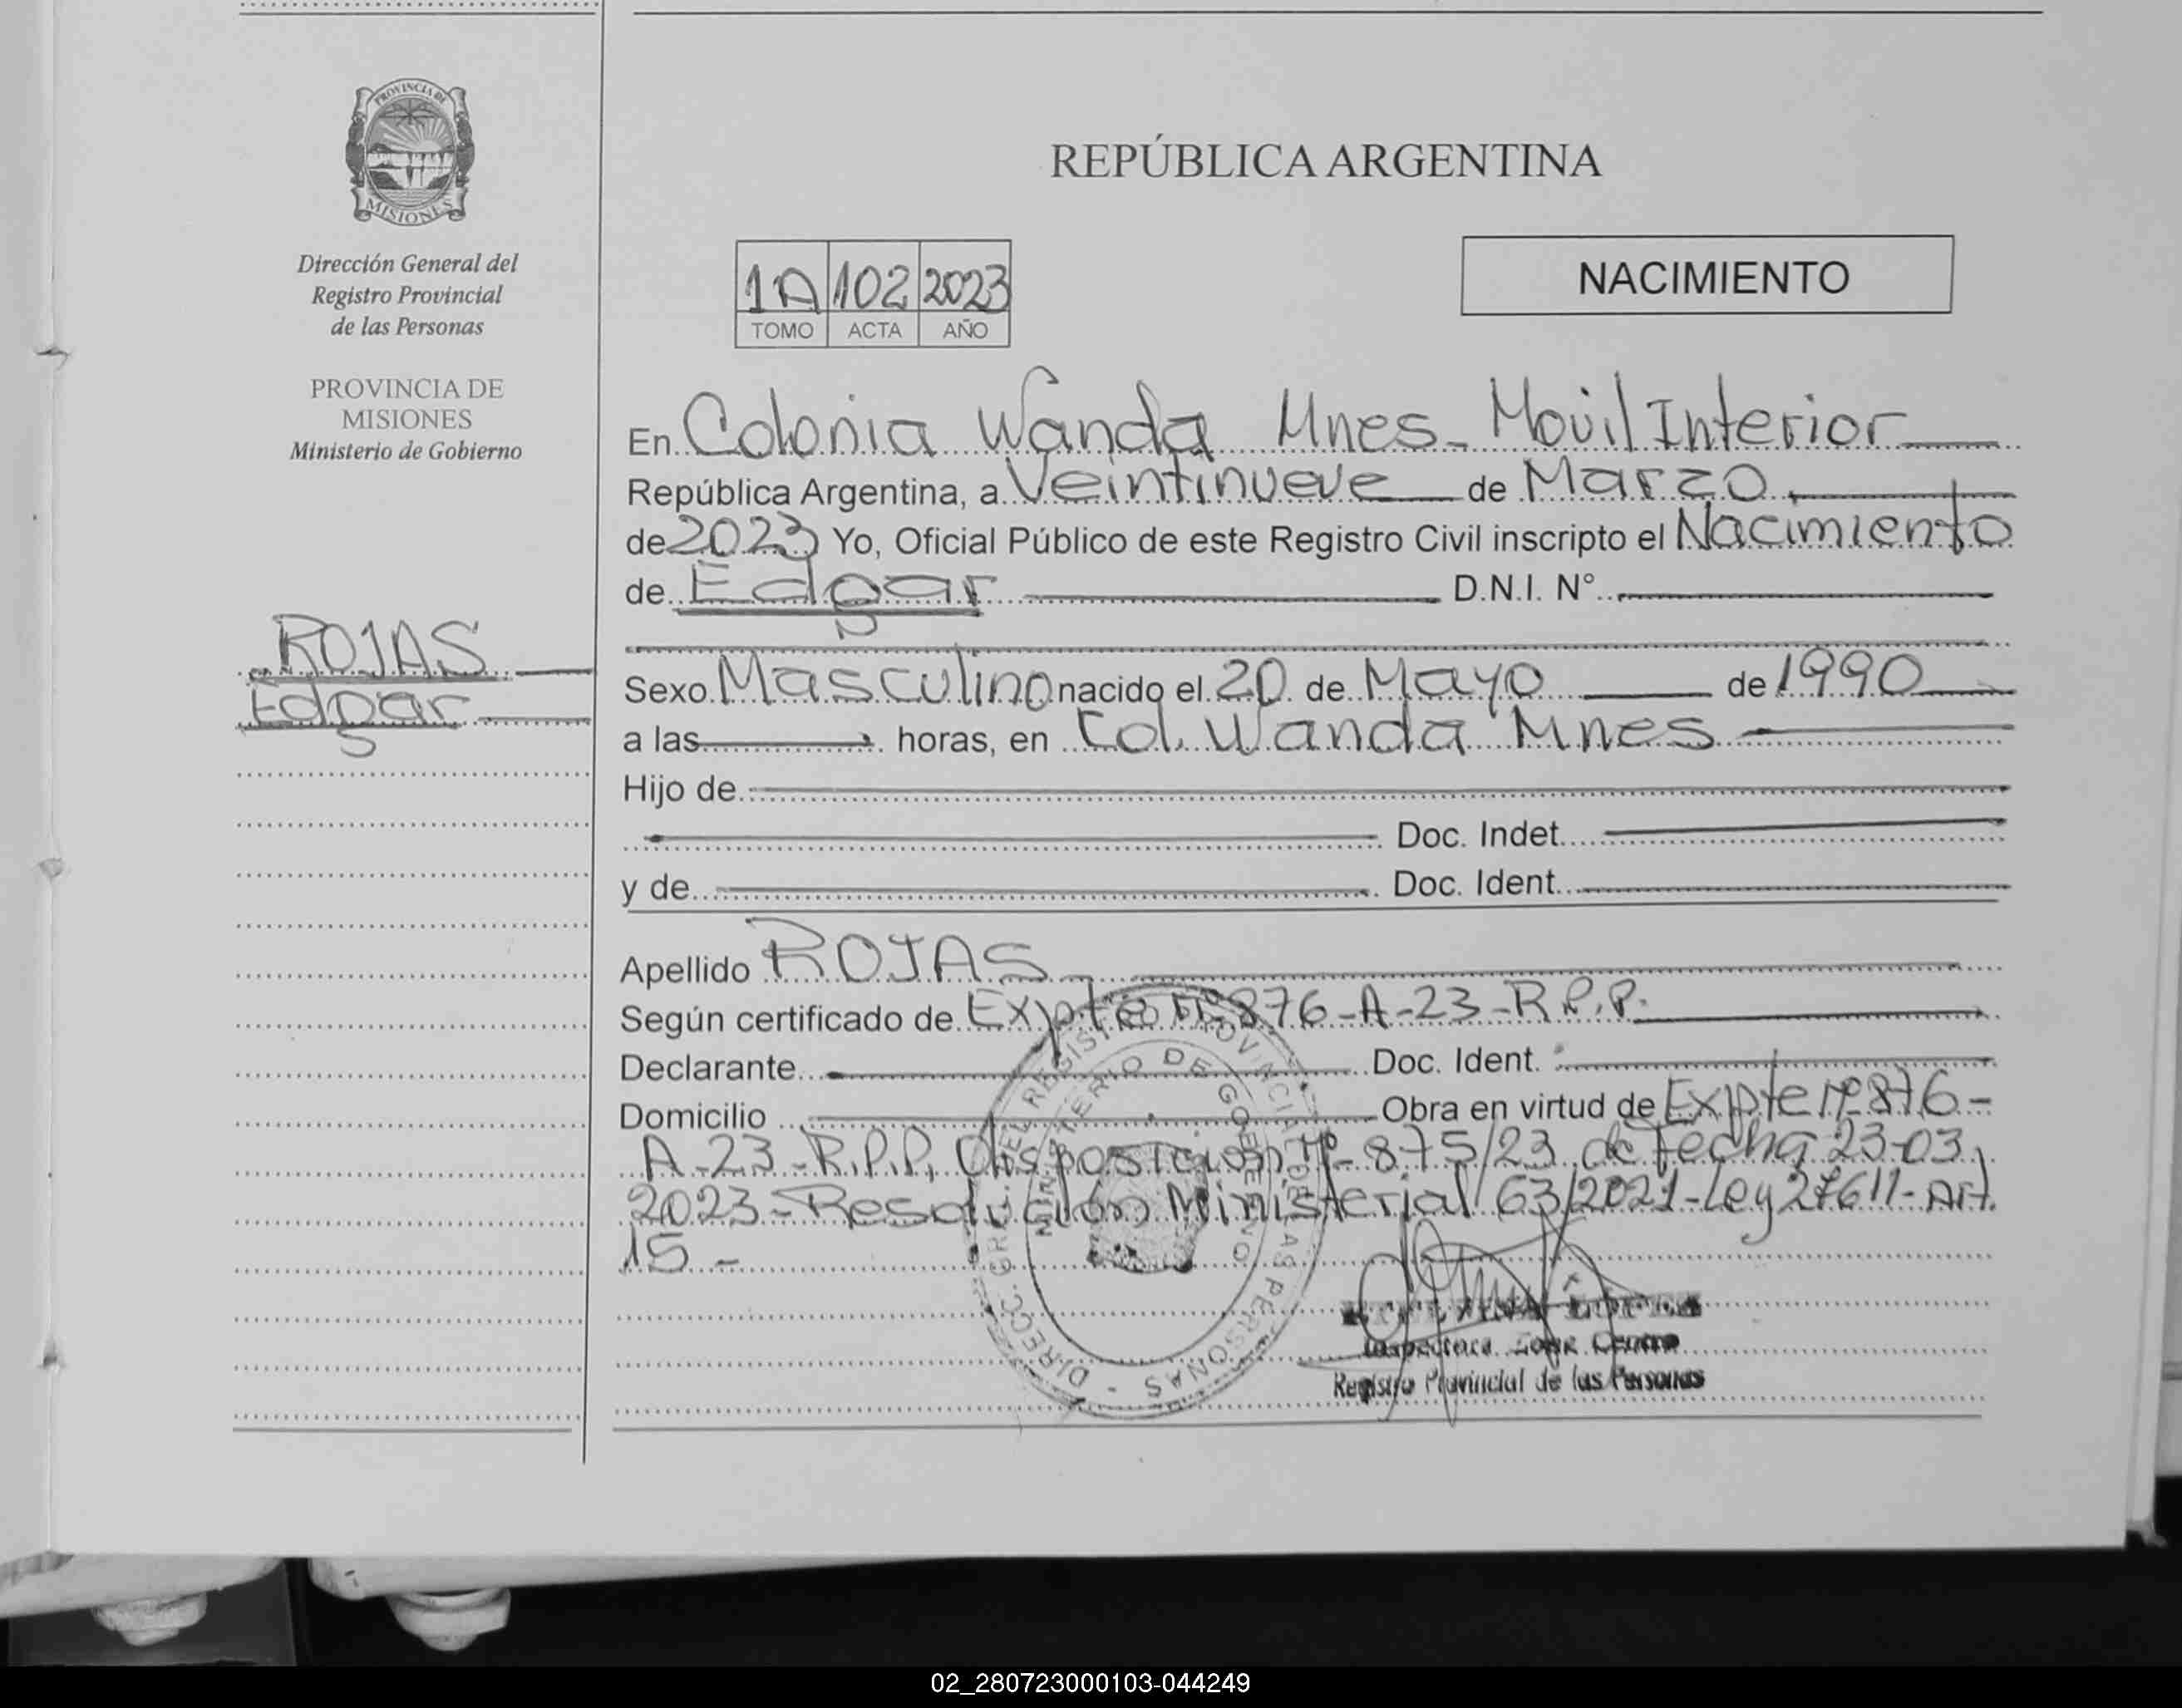 PROVINCIA DE
MISIONES
Dirección General del
Registro Provincial
de las Personas
PROVINCIA DE
MISIONES
Ministerio de Gobierno
ROJAS
Edgar
REPÚBLICA ARGENTINA
1A 102 2023
TOMO ACTA AÑO
NACIMIENTO
En Colonia Wanda Mnes - Movil Interior
República Argentina, a Veintinueve de Marzo
de 2023 Yo, Oficial Público de este Registro Civil inscripto el Nacimiento
de Edgar D.N.I. N°
Sexo Masculino nacido el 20 de Mayo de 1990
a las horas, en Col. Wanda Mnes
Hijo de
Doc. Indet.
y de Doc. Ident.
Apellido ROJAS
Según certificado de Expte Nº 876-A-23-R.P.P.
Declarante Doc. Ident.
Domicilio Obra en virtud de Expte Nº 876-
A-23-R.P.P, Disposicion Nº 875/23 de fecha 23-03
2023-Resolución Ministerial 63/2021-Ley 27611-Art.
15-
DIRECC. GRAL. DEL REGISTRO PROVINCIAL DE LAS PERSONAS -
MINISTERIO DE GOBIERNO
Inspectora Zona Centro
Registro Provincial de las Personas
02_280723000103-044249